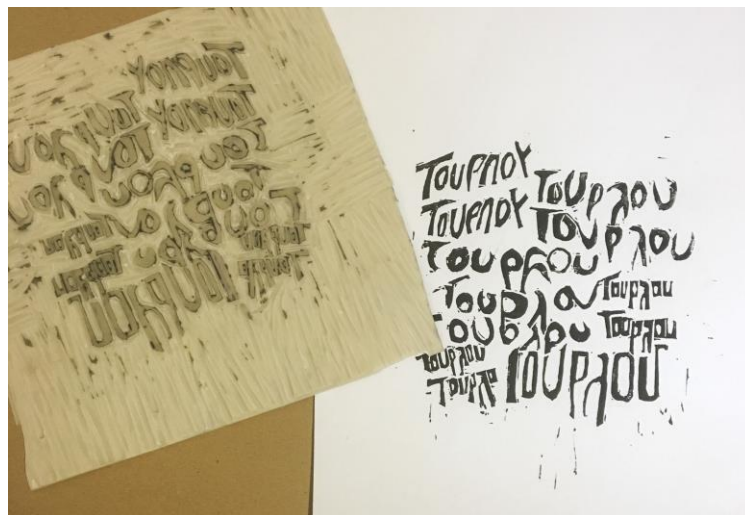 Τουρλου Τουρλου
Τουρλου Τουρλου
Τουρλου
Τουρλου Τουρλου
Τουρλου Τουρλου
Τουρλου
Τουρλο Τουρλου